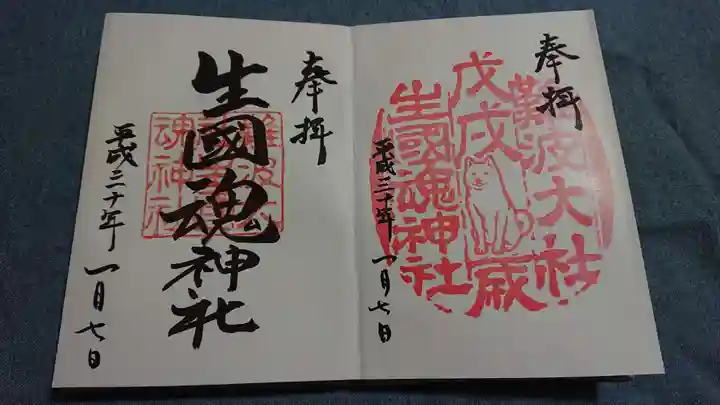 奉拝
難波大社
戊戌歳
生國魂神社
平成三十年 一月七日
奉拝
生國魂神社
難波大社
生國魂
魂神社
平成三十年 一月七日